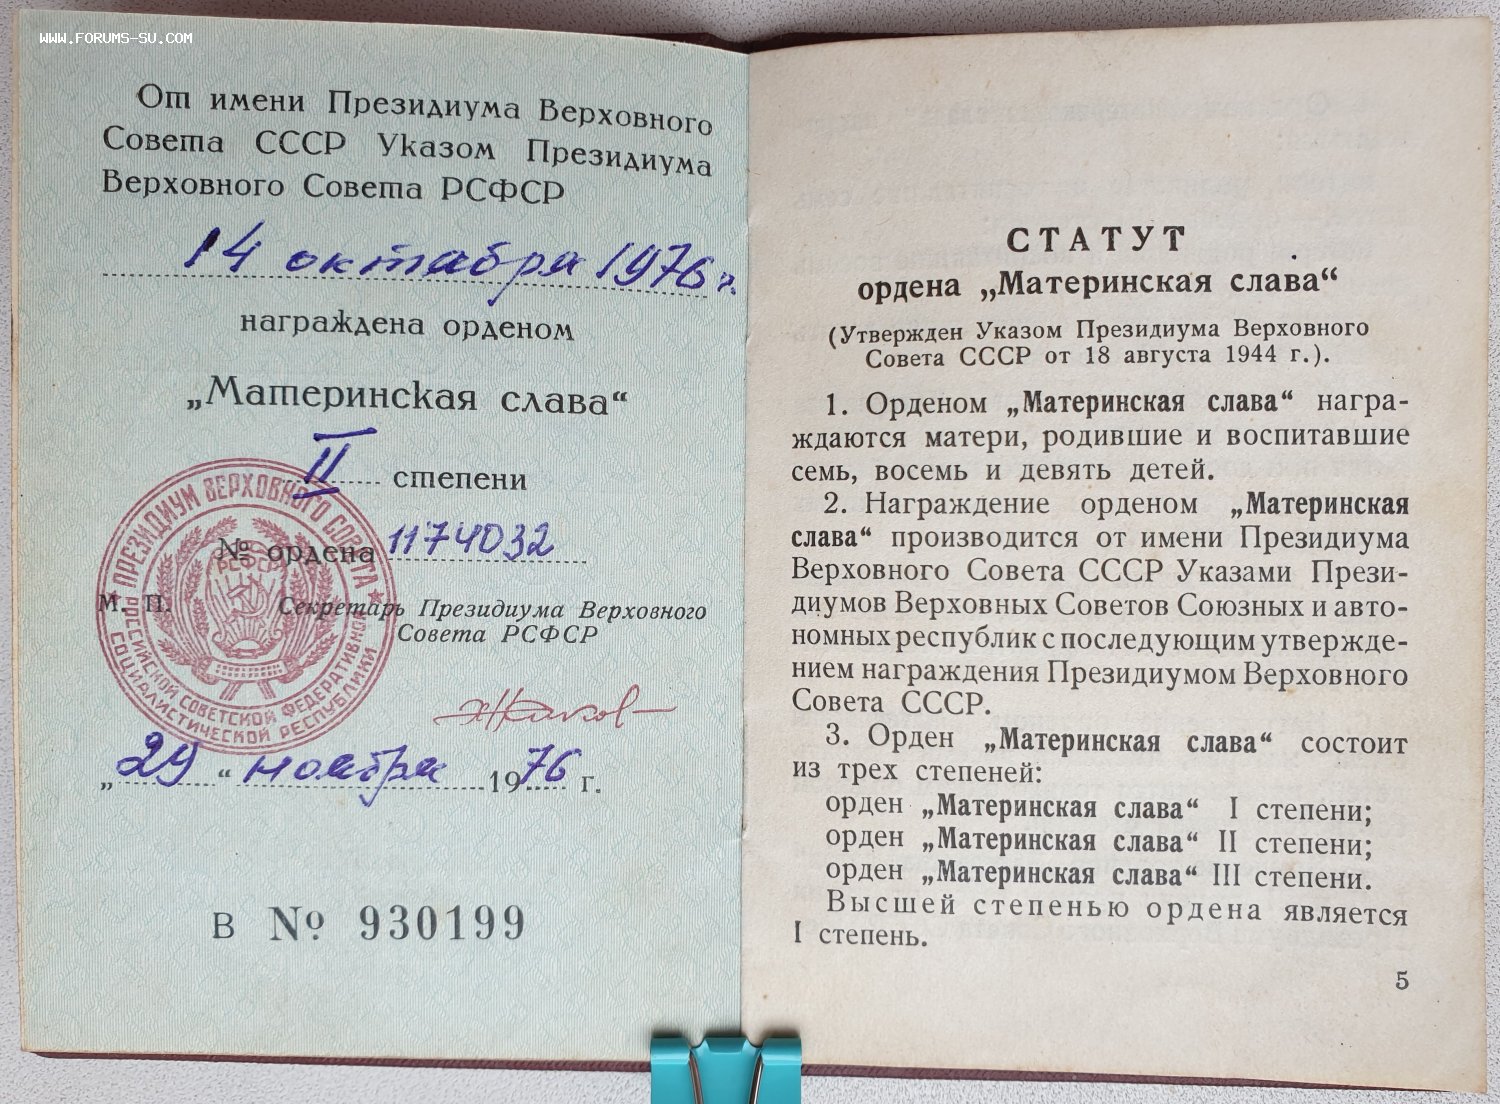 WWW.FORUMS-SU.COM
От имени Президиума Верховного
Совета СССР Указом Президиума
Верховного Совета РСФСР
14 октября 1976 г.
награждена орденом
„Материнская слава“
II степени
№ ордена 1174032
М. П.
Секретарь Президиума Верховного
Совета РСФСР
„29“ ноября 1976 г.
В № 930199
ПРЕЗИДИУМ ВЕРХОВНОГО СОВЕТА
РОССИЙСКОЙ СОВЕТСКОЙ ФЕДЕРАТИВНОЙ
СОЦИАЛИСТИЧЕСКОЙ РЕСПУБЛИКИ
РСФСР
СТАТУТ
ордена „Материнская слава“
(Утвержден Указом Президиума Верховного
Совета СССР от 18 августа 1944 г.).
1. Орденом „Материнская слава“ награ-
ждаются матери, родившие и воспитавшие
семь, восемь и девять детей.
2. Награждение орденом „Материнская
слава“ производится от имени Президиума
Верховного Совета СССР Указами Прези-
диумов Верховных Советов Союзных и авто-
номных республик с последующим утвержде-
нием награждения Президиумом Верховного
Совета СССР.
3. Орден „Материнская слава“ состоит
из трех степеней:
орден „Материнская слава“ I степени;
орден „Материнская слава“ II степени;
орден „Материнская слава“ III степени.
Высшей степенью ордена является
I степень.
5